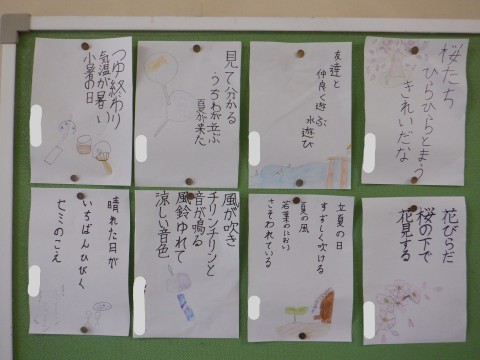 桜たち
ひらひらとまう
きれいだな
友達と
仲良く遊ぶ
水遊び
見て分かる
うちわが並ぶ
夏が来た
つゆ終わり
気温が暑い
小暑の日
花びらだ
桜の下で
花見する
立夏の日
すずしく吹ける
夏の風
若葉のにおい
さそわれている
風が吹き
チリンチリンと
音が鳴る
風鈴ゆれて
涼しい音色
晴れた日が
いちばんひびく
セミのこえ